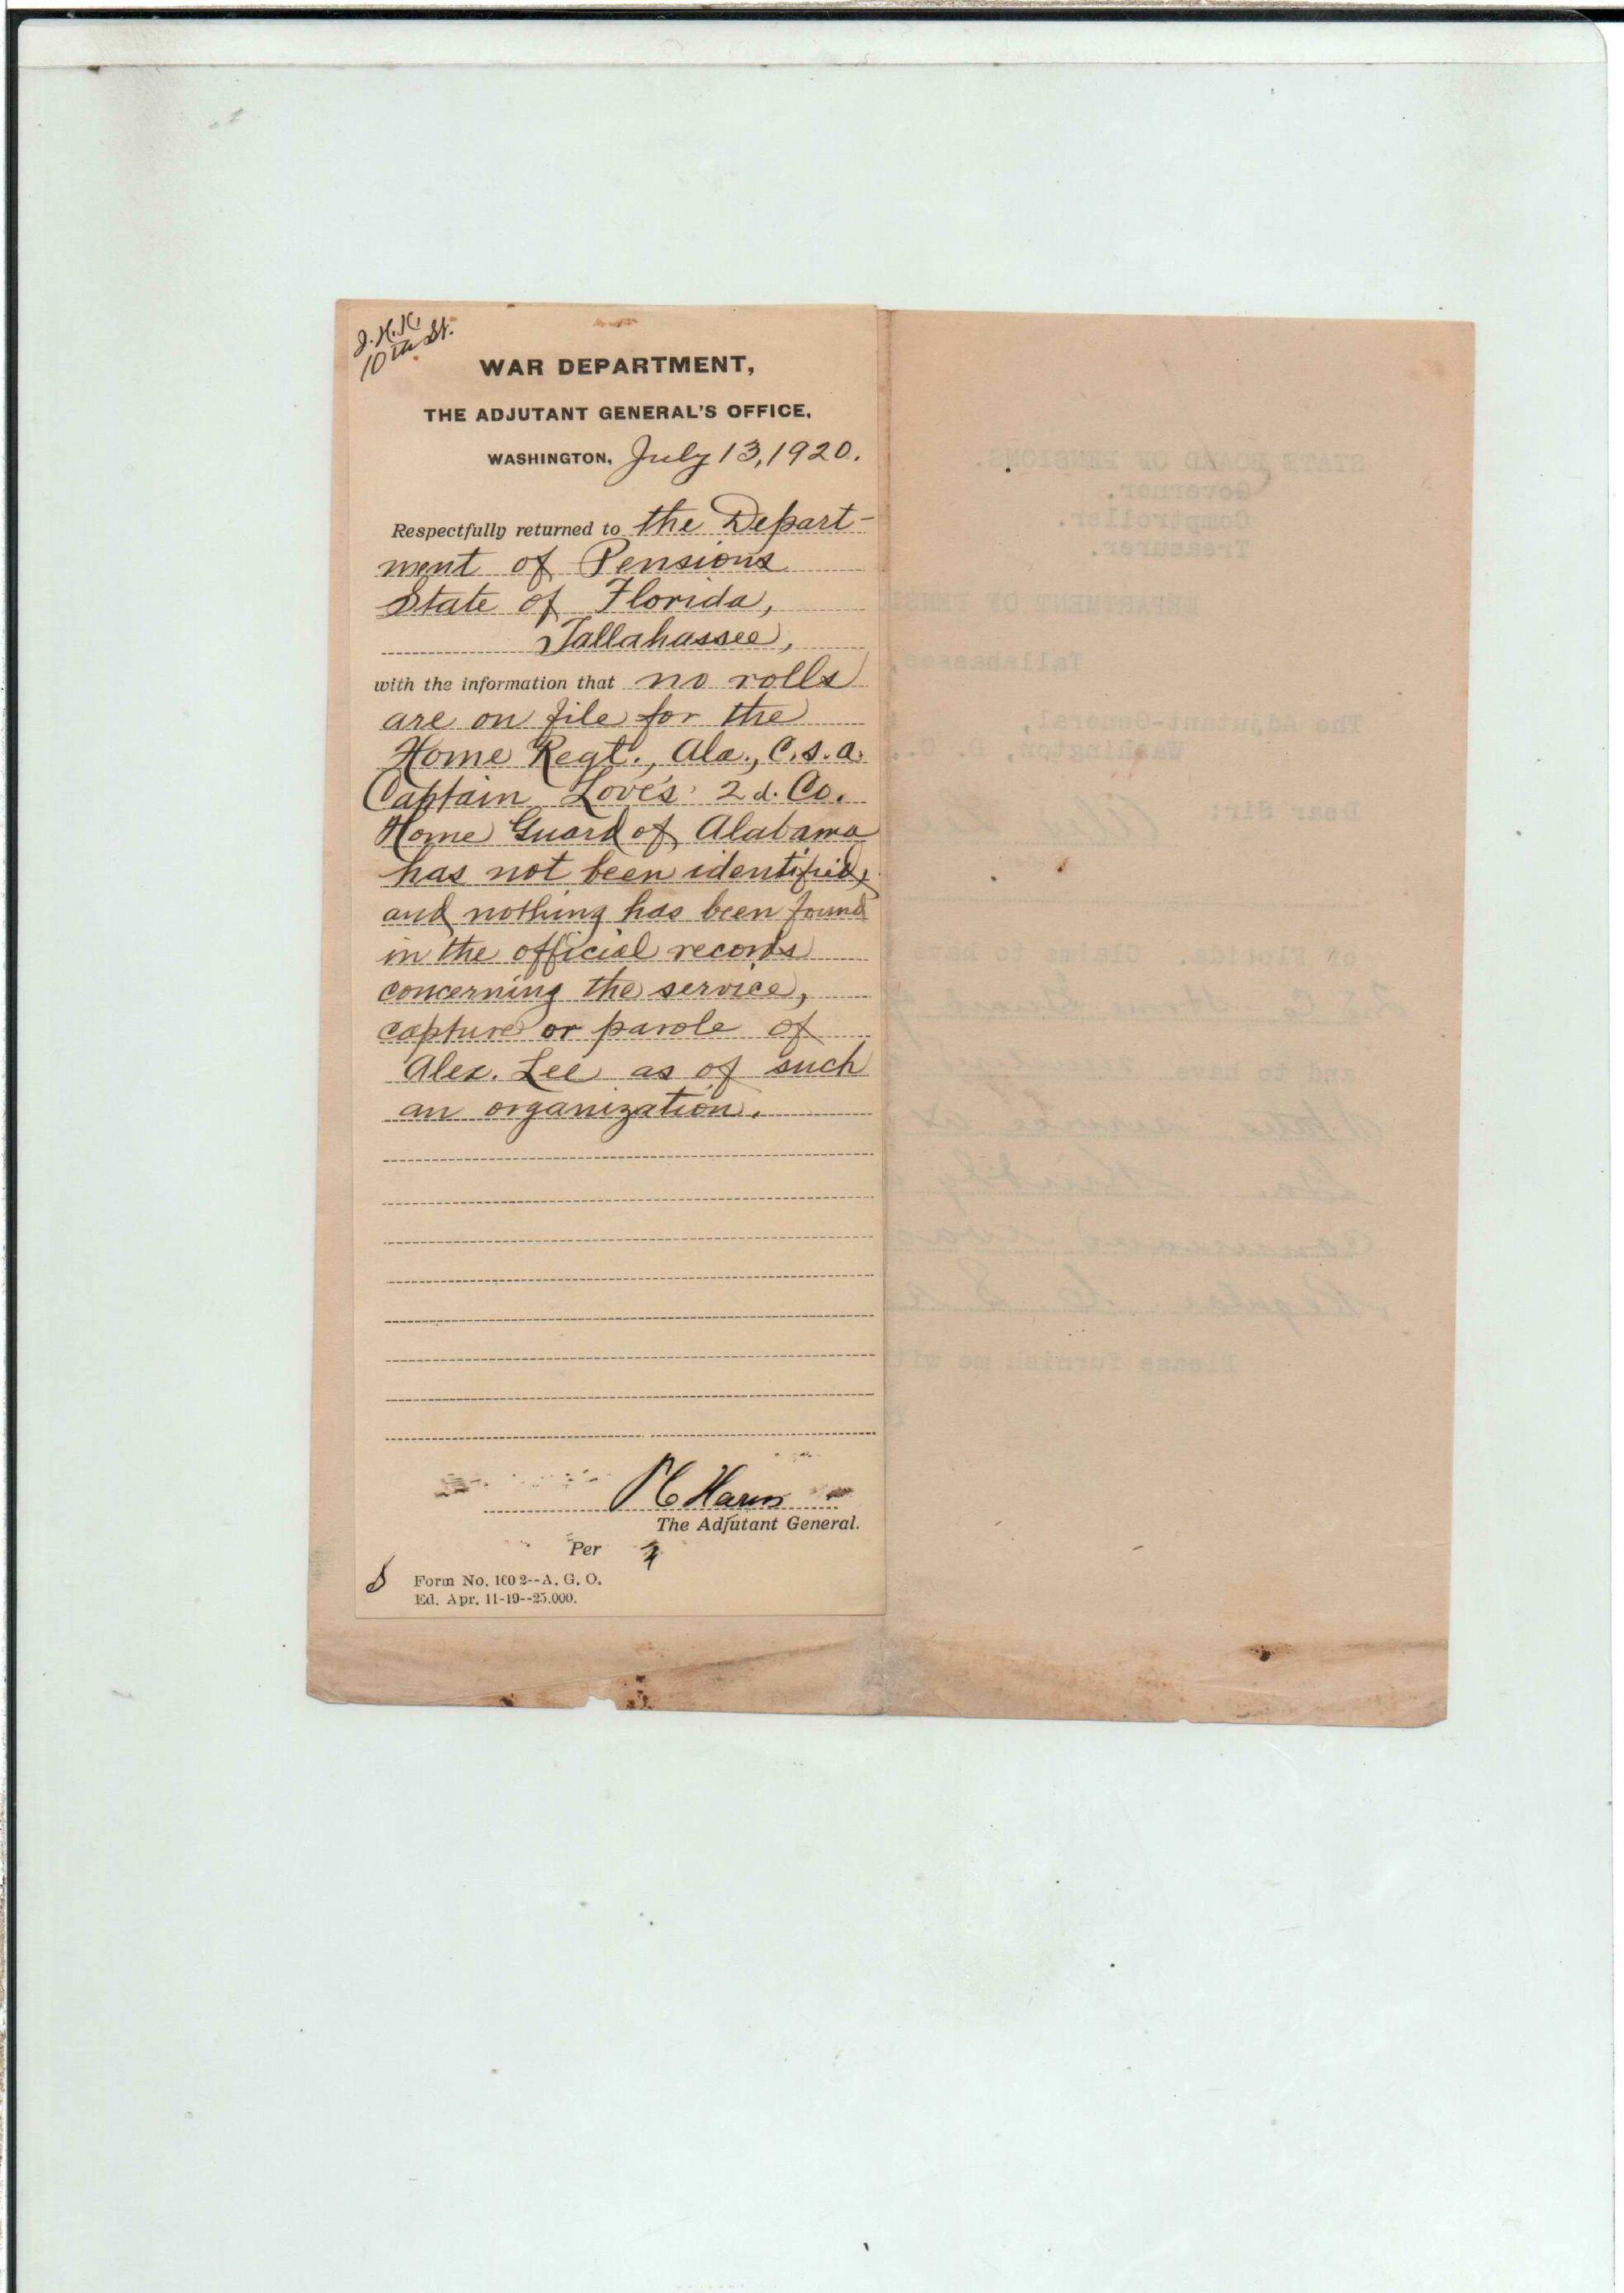 J.H.K.
10th St.
WAR DEPARTMENT,
THE ADJUTANT GENERAL'S OFFICE,
WASHINGTON, July 13, 1920.
Respectfully returned to the Depart-
ment of Pensions
State of Florida,
Tallahassee,
with the information that no rolls
are on file for the
Home Regt., Ala., C.S.A.
Captain Love's 2d. Co.
Home Guard of Alabama
has not been identified,
and nothing has been found
in the official records
concerning the service,
capture or parole of
Alex. Lee as of such
an organization.
P C Harris
The Adjutant General.
Per
Form No. 1002--A. G. O.
Ed. Apr. 11-19--25.000.
STATE BOARD OF PENSIONS.
Governor.
Comptroller.
Treasurer.
DEPARTMENT OF
Tallahassee,
The Adjutant-General,
Washington, D. C.
Dear Sir:
of Florida. Claims to have
2d Co Home Guard
and to have
service
Ala. Kindly
Command was
Regular C S A
Please furnish me with